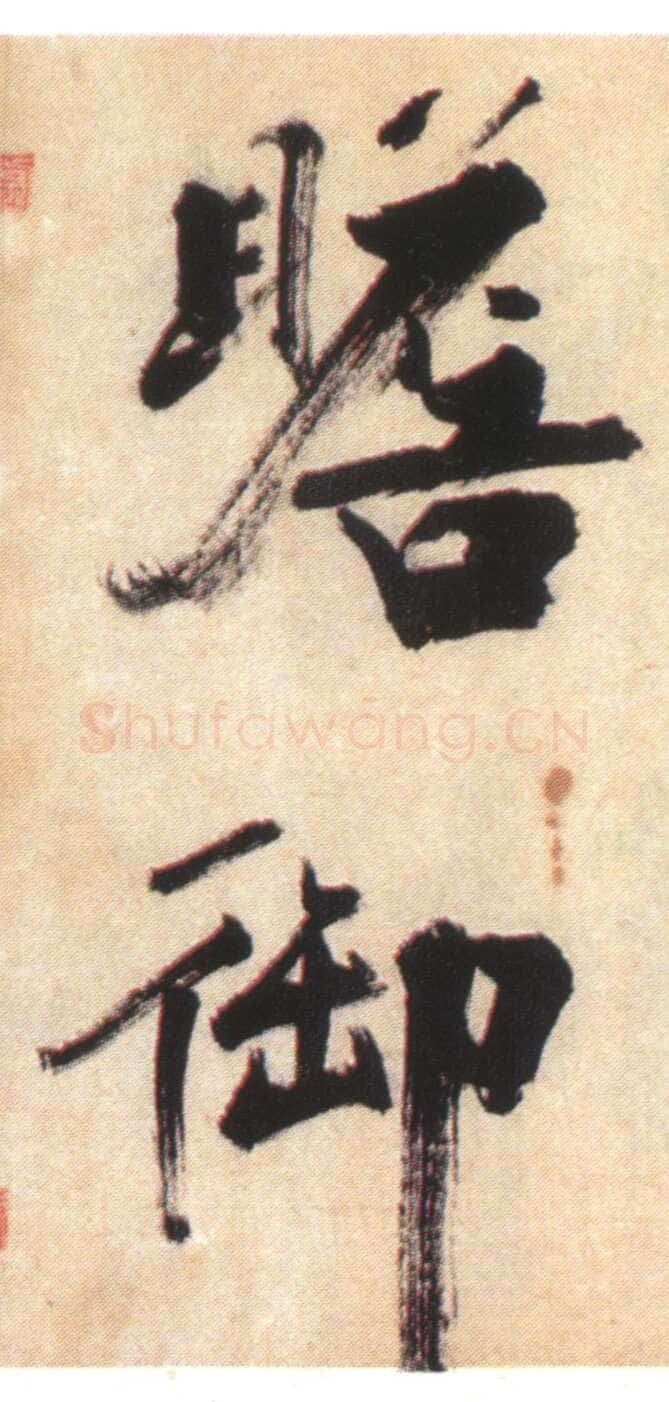 瞻
御
Shufawang.CN